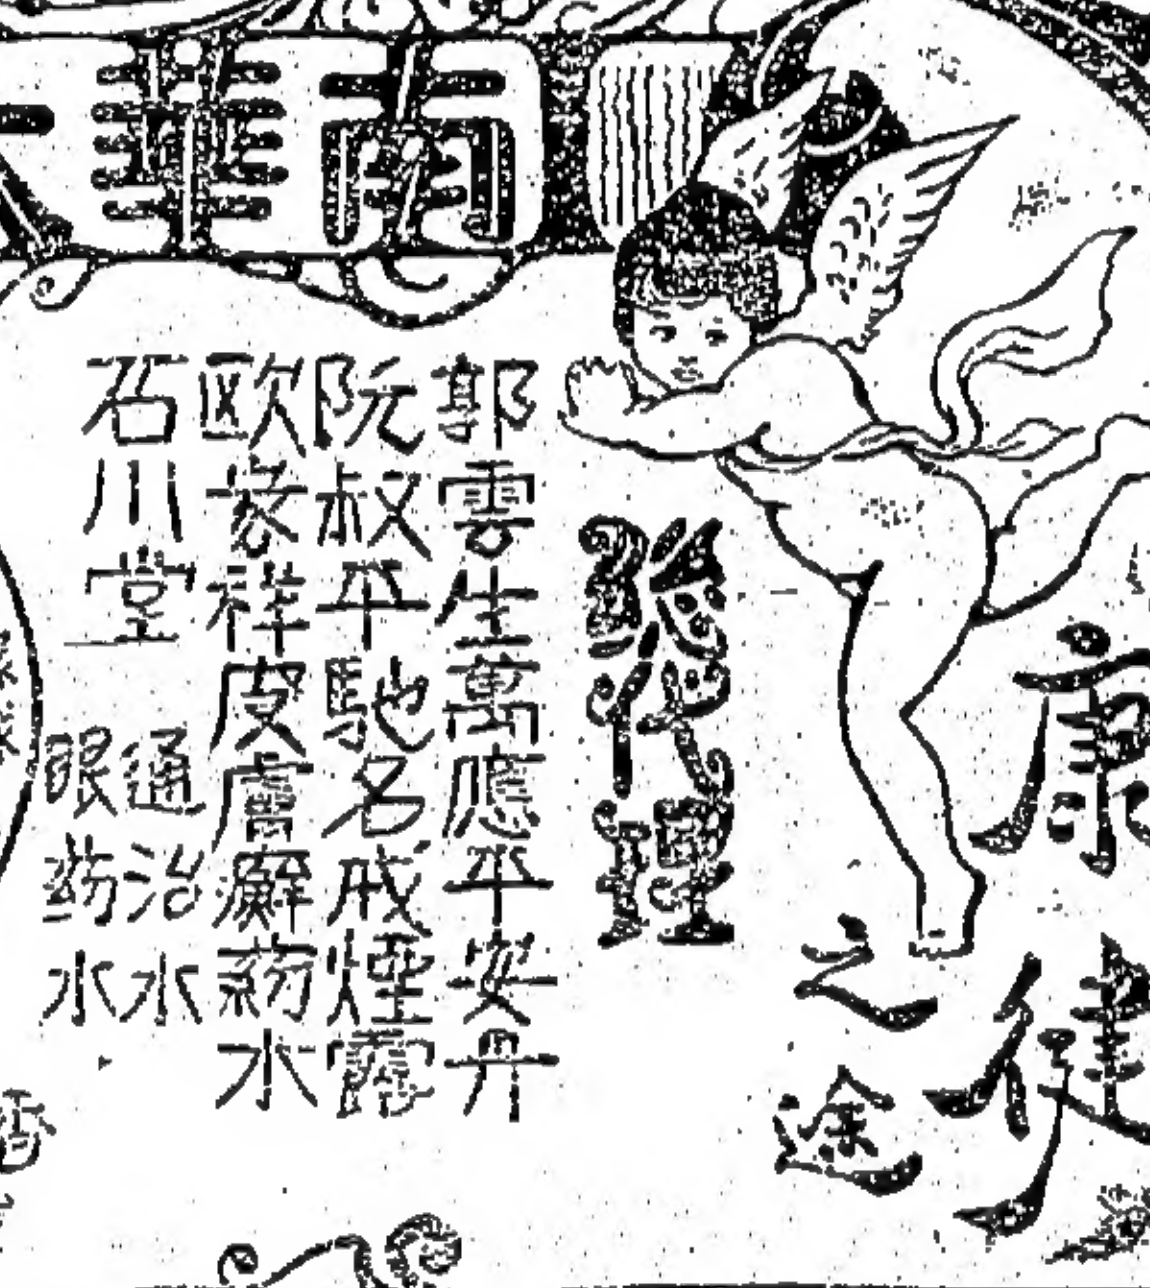 南華
康健
之途
總代理
郭雲生萬應平安丹
阮叔平馳名戒煙露
歐家祥皮膚癬葯水
石川堂
通治水
眼葯水